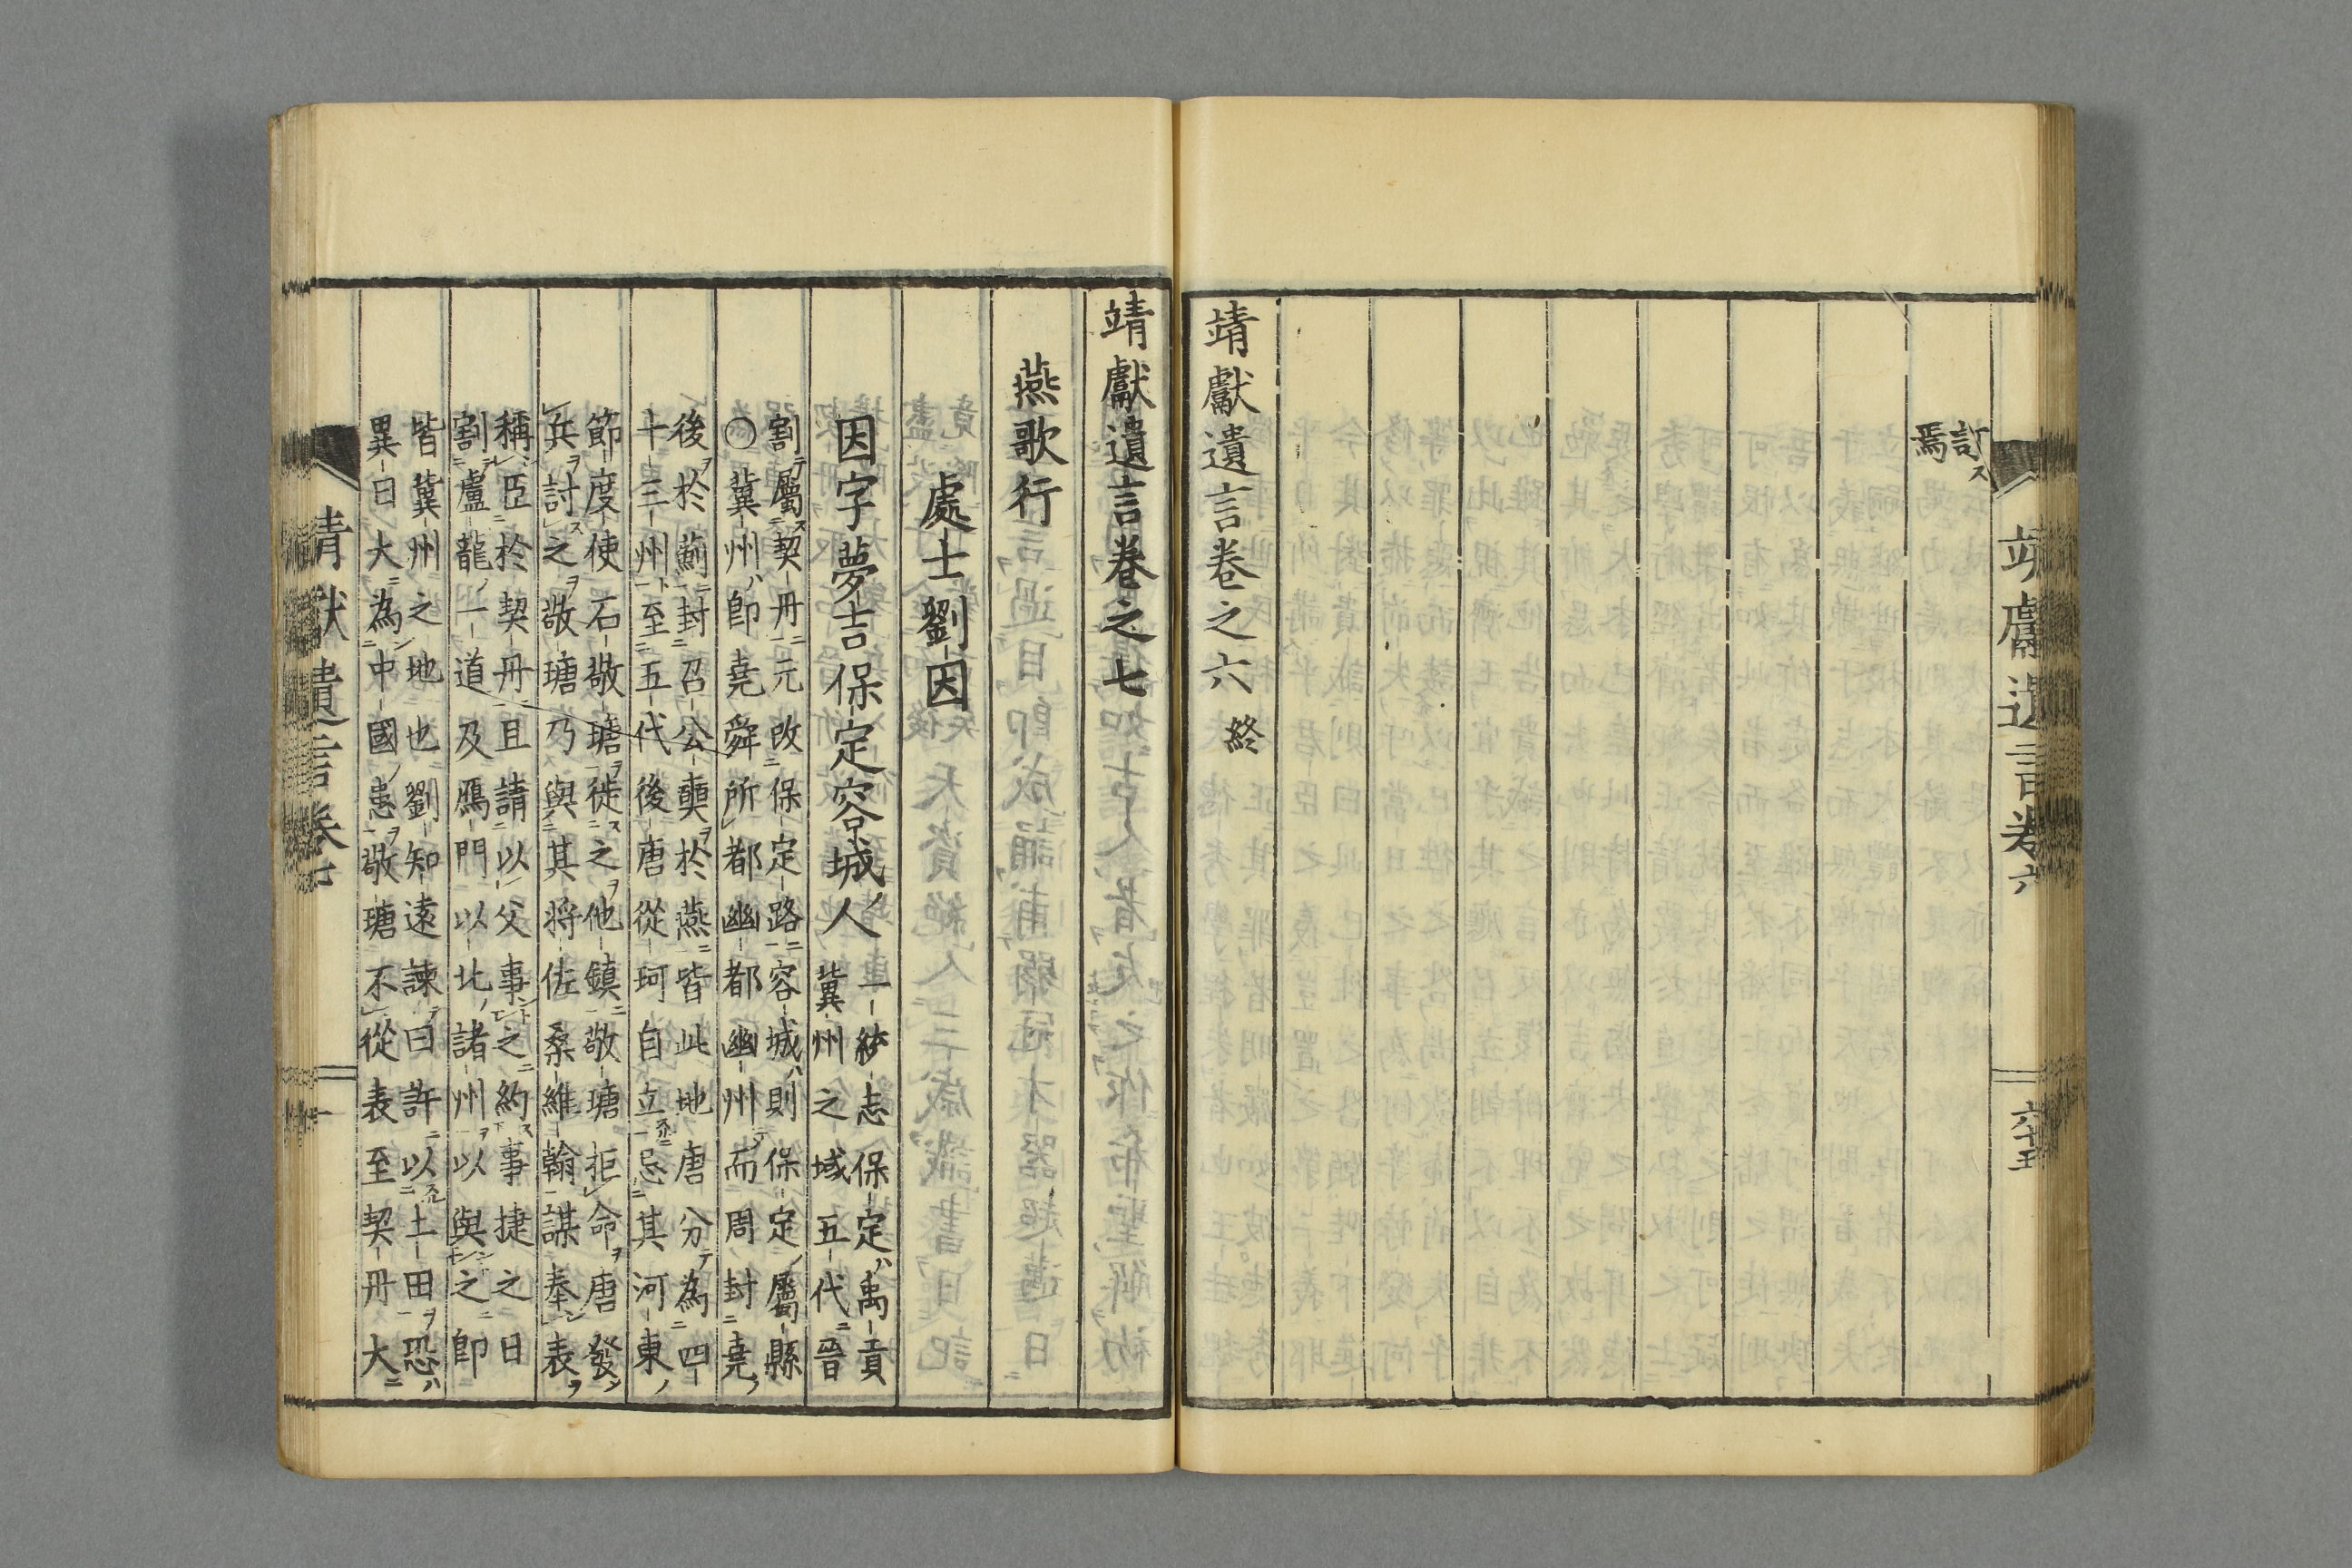 訂ス
焉
靖獻遺言卷之六 終
靖獻遺言卷六
六十五
靖獻遺言卷之七
燕歌行
處士劉因
因字夢吉保定容城人
一統志保定禹貢
冀州之域五代晉
割屬契丹元改保定路容城則保定屬縣
○冀州即堯舜所都幽都幽州而周封堯
後於薊封召公奭於燕皆此地唐分為四
十三州至五代後唐從珂自立忌其河東
節度使石敬瑭徙之他鎮敬瑭拒命唐發
兵討之敬瑭乃與其将佐桑維翰謀奉表
稱臣於契丹且請以父事之約事捷之日
割盧龍一道及鴈門以北諸州以與之即
皆冀州之地也劉知遠諫曰許以土田恐
異日大為中國患敬瑭不從表至契丹大
靖獻遺言卷七
一